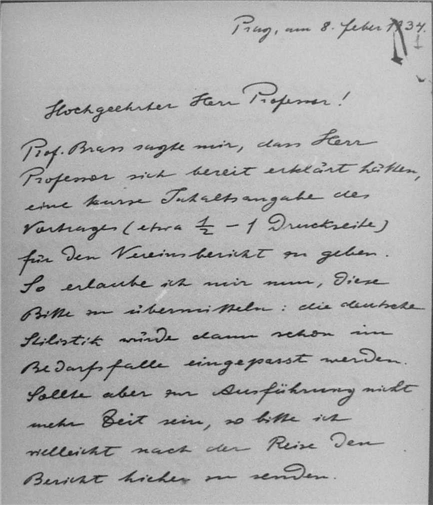 Prag, am 8. feber 1934.
Hochgeehrter Herr Professor!
Prof. Brass sagte mir, dass Herr
Professor sich bereit erklärt hätten,
eine kurze Inhaltsangabe des
Vortrages (etwa ½ – 1 Druckseite)
für den Vereinsbericht zu geben.
So erlaube ich mir nun, diese
Bitte zu übermitteln: die deutsche
Stilistik würde dann schon im
Bedarfsfalle eingepasst werden.
Sollte aber zur Ausführung nicht
mehr Zeit sein, so bitte ich
vielleicht nach der Reise den
Bericht hieher zu senden.